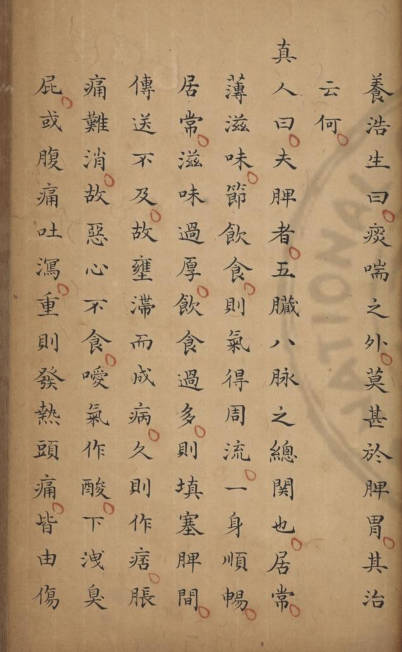 養浩生曰痰喘之外莫甚於脾胃其治
云何
真人曰夫脾者五臟八脉之總関也居常
薄滋味節飲食則氣得周流一身順暢
居常滋味過厚飲食過多則填塞脾間
傳送不及故壅滯而成病久則作痞脹
痛難消故惡心不食噯氣作酸下洩臭
屁或腹痛吐瀉重則發熱頭痛皆由傷